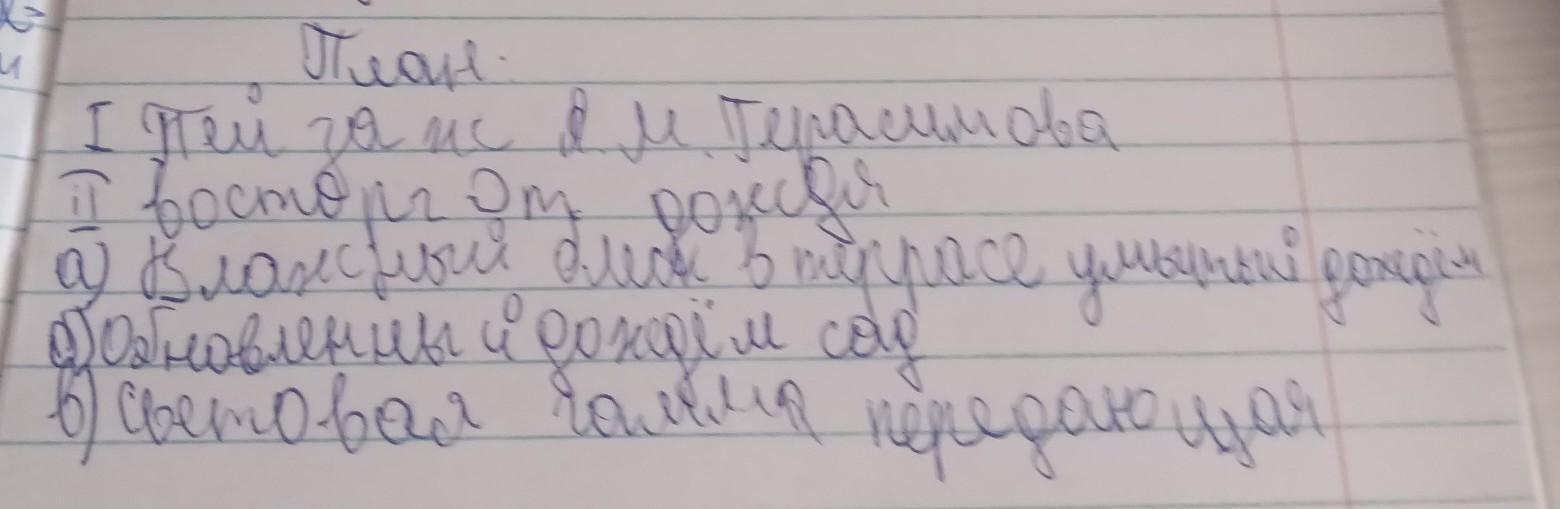 План.
I Пейзажис А. М. Герасимова
II восторг От дождя
а) Влажный блеск в террасе умытый дождём
б) Обновленный дождём сад
в) световая гамма передающая